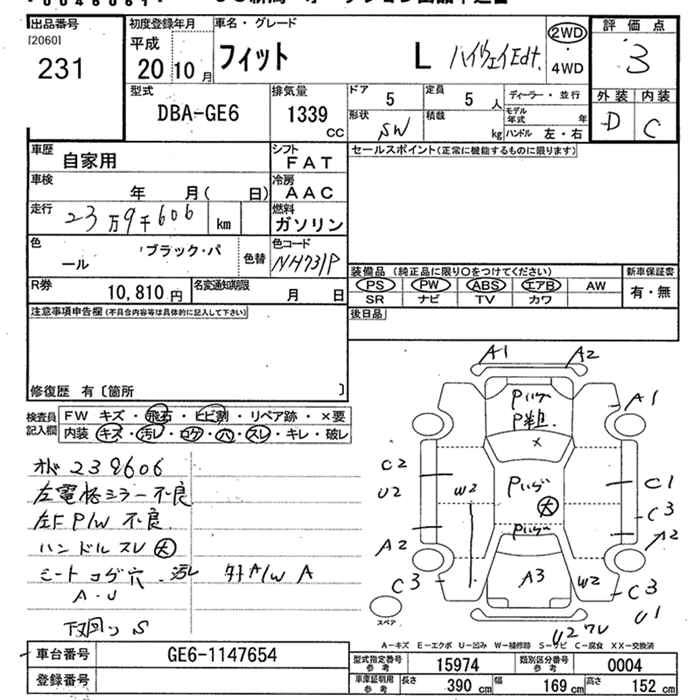 出品番号 初度登録年月 車名・グレード 評価点
[2060]
231
平成 20 年 10 月
フィット L ハイウェイEdt.
2WD
・
4WD
3
型式 DBA-GE6
排気量 1339 CC
ドア 5 定員 5 人 ディーラー・並行
形状 SW 積載 kg モデル年式 年 ハンドル 左・右
外装 内装
D C
車歴 自家用
シフト FAT
セールスポイント(正常に機能するものに限ります)
車検 年 月( 日)
冷房 AAC
走行 23万9千606 km
燃料 ガソリン
色 ブラック・パ
ール
色替
色コード NH731P
装備品 (純正品に限り○をつけてください) 新車保証書
PS PW ABS エアB AW 有・無
SR ナビ TV カワ
R券 10,810 円 名変通知期限 月 日
後日品
注意事項申告欄(不具合内容等は具体的に記入して下さい)
修復歴 有〔箇所 〕
検査員
記入欄
FW キズ・飛石・ヒビ割・リペア跡・×要
内装 キズ・汚レ・コゲ・穴・スレ・キレ・破レ
239606
左電格ミラー不良
左F P/W 不良
ハンドルスレ 大
シートコゲ穴 汚レ
A・U
A/W A
下廻り S
A1 A2
A1
Pいげ
P粗
×
C2
U2
W2
Pいげ
大
C1
C3
A2
A2
Pいげ
C3
A3
W2
C3
U1
U2
スペア
A-キズ E-エクボ U-凹み W-補修跡 S-サビ C-腐食 XX-交換済
車台番号 GE6-1147654
型式指定番号 参考 15974 類別区分番号 参考 0004
登録番号
車庫証明用 参考 長さ 390 cm 幅 169 cm 高さ 152 cm